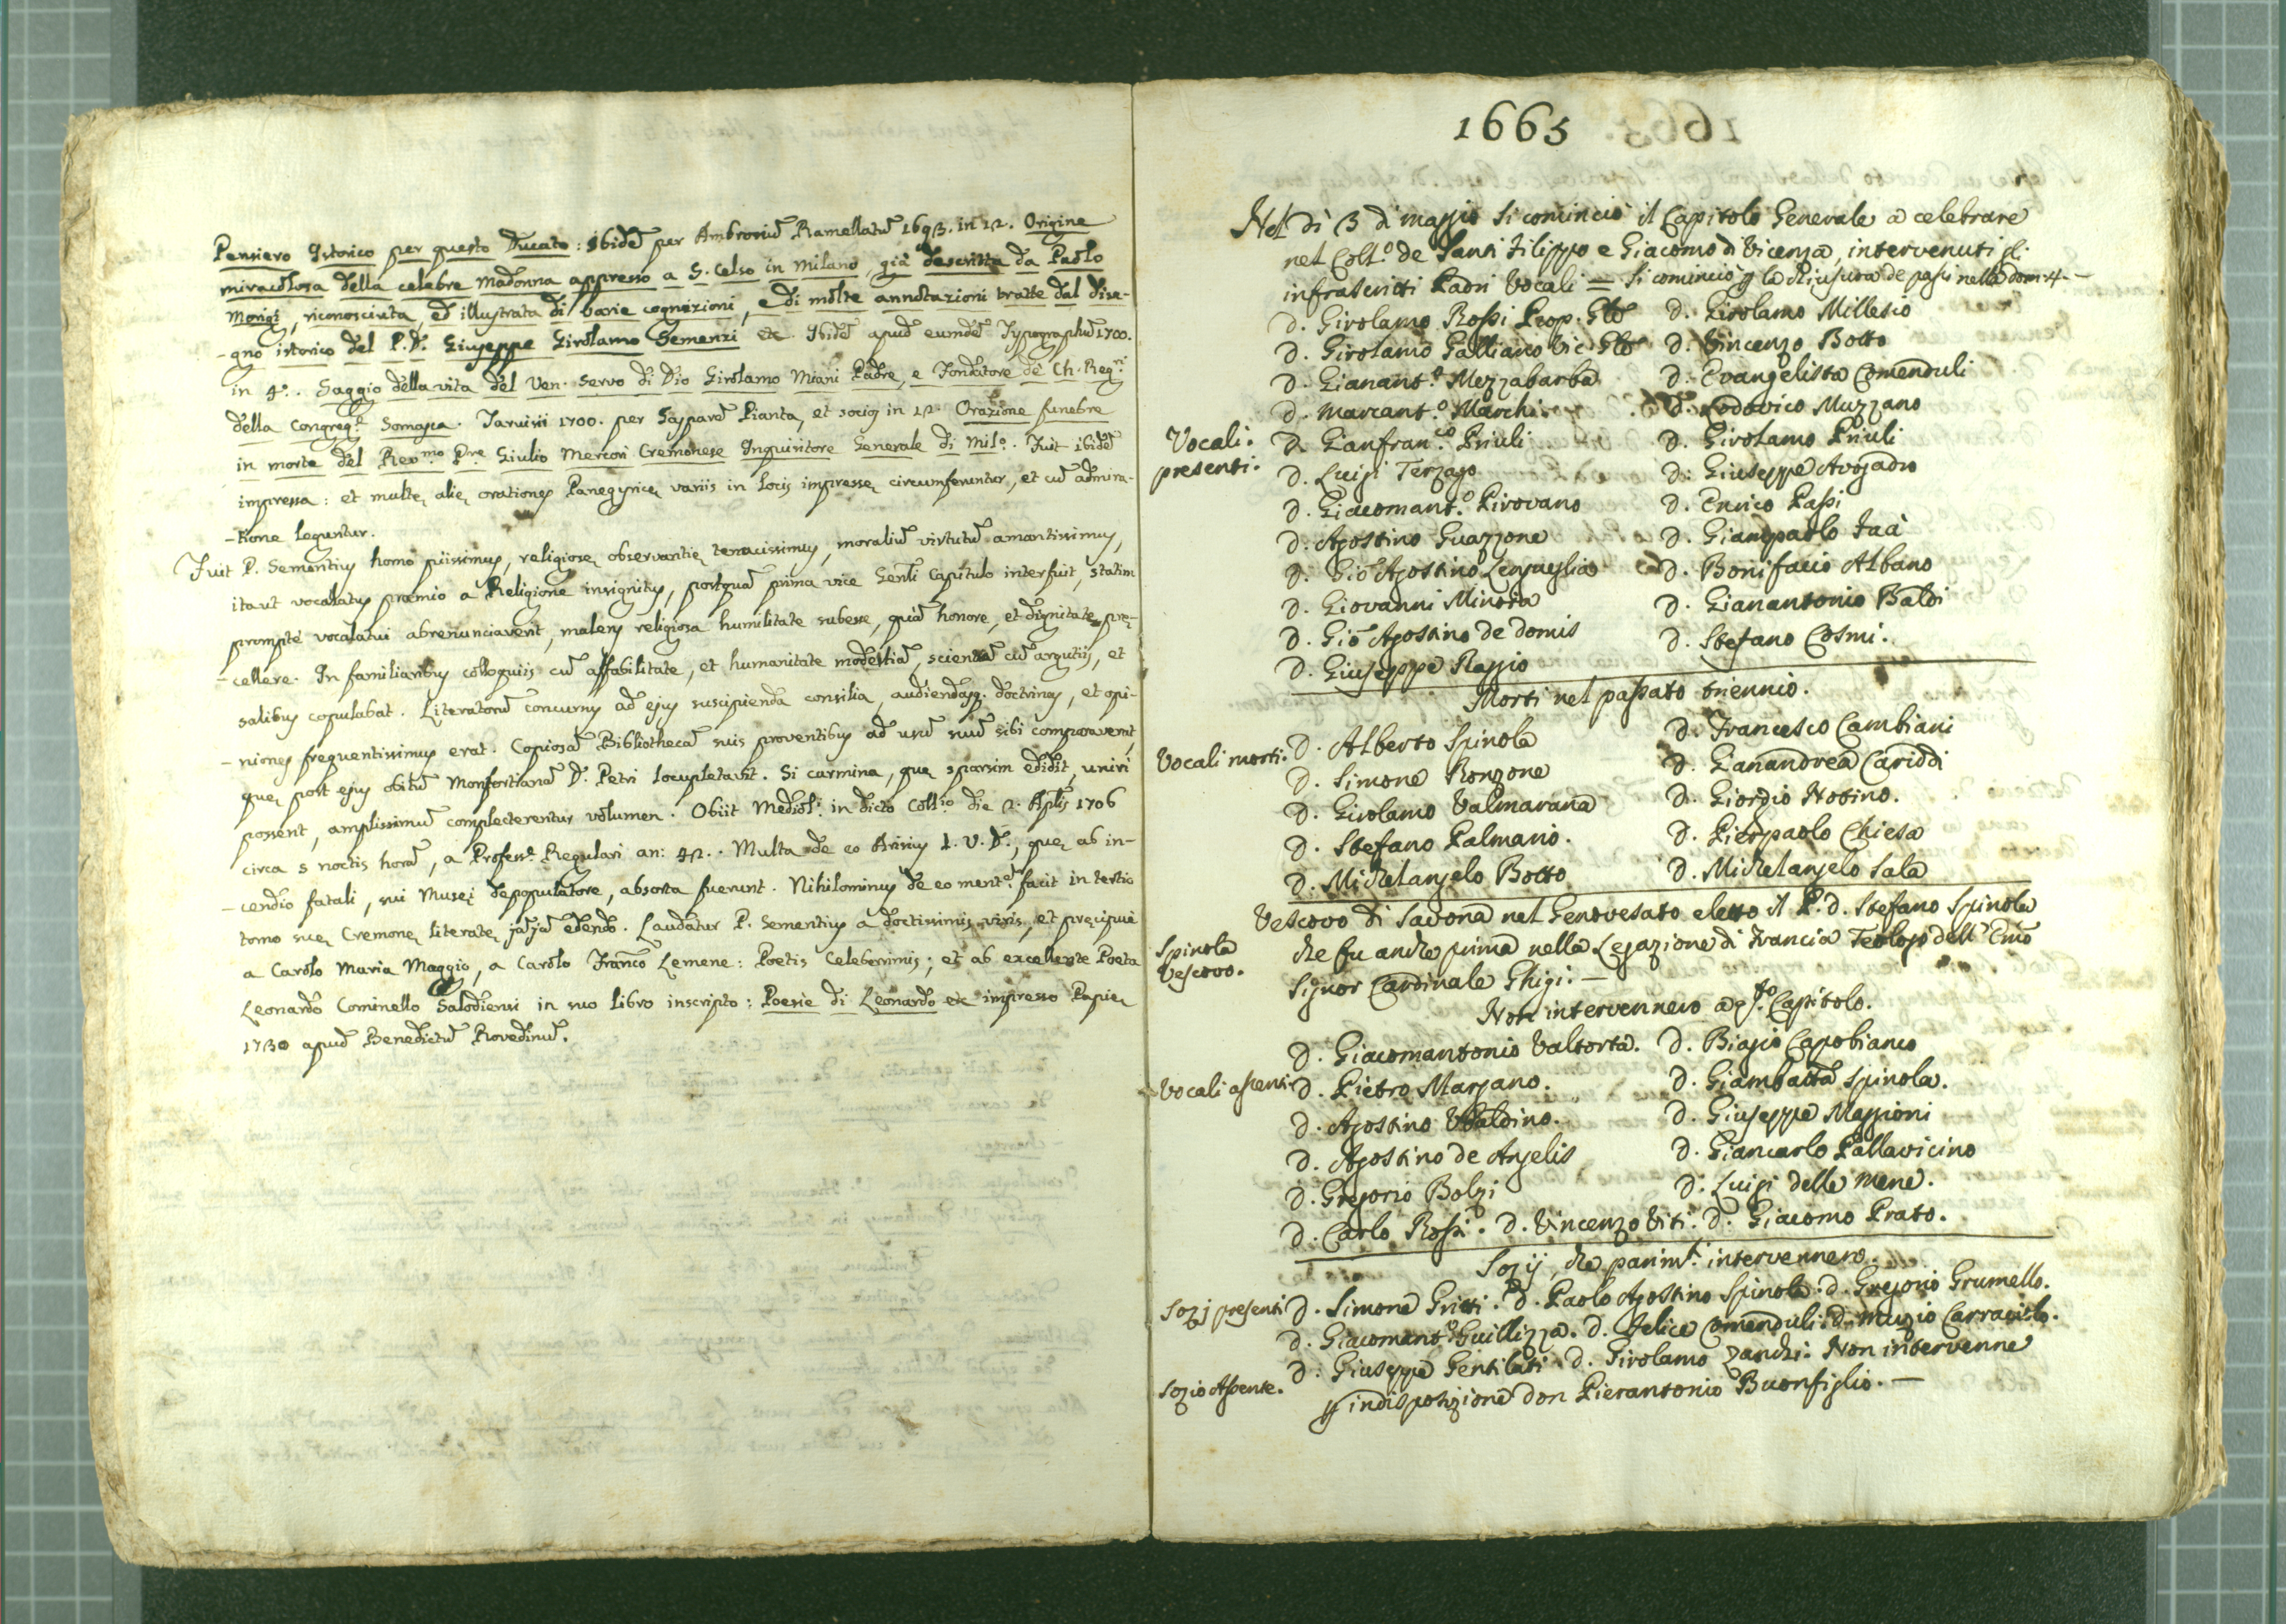 Pensiero Istorico per questo Ducato: ibidē per Ambrosiū Ramellatū 1693. in 12. Origine
miracolosa della celebre Madonna appresso a S. Celso in Milano, già descritta da Paolo
Morigi, riconosciuta, ed illustrata di varie cognizioni, e di molte annotazioni tratte dal dise-
-gno istorico del P. D. Giuseppe Girolamo Semenzi etc. Ibidē apud eumdē Typographū 1700.
in 4º. Saggio della vita del Ven. servo di Dio Girolamo Miani Padre, e Fondatore de Ch. Reg.ri
della Congreg.e Somasca. Tarvisii 1700. per Gasparē Pianta, et socios in 12. Orazione funebre
in morte del Rev.mo P.re Giulio Mercori Cremonese Inquisitore Generale di Mil.o. Fuit ibidē
impressa: et multę alię orationes Panegyricę variis in locis impressę circumferuntur, et cū admira-
-tione leguntur.
Fuit P. Sementius homo piissimus, religiosę observantię tenacissimus, moraliū virtutū amantissimus,
itaut vocalatus praemio a Religione insignitus, postquā prima vice Genli Capitulo interfuit, statim
prompte vocalatui abrenunciaverit, malens religiosa humilitate subesse, quā honore, et dignitate prę-
-cellere. In familiaribus colloquiis cū affabilitate, et humanitate modestiā, scientiā cū argutiis, et
salibus copulabat. Literatorū concursus ad ejus suscipienda consilia, audiendasq. doctrinas, et opi-
-niones frequentissimus erat. Copiosā Bibliothecā suis proventibus ad usū suū sibi comparaverat,
quę post ejus obitū Monfortianā D. Petri locupletavit. Si carmina, quę sparsim edidit, uniri
possent, amplissimū complecterentur volumen. Obiit Mediol. in dicto Coll.io die 2. Aplis 1706
circa 5 noctis horā, a Profess.e Regulari an: 42. Multa de eo Arisius I. V. D., quę ab in-
-cendio fatali, sui Museį depopulatore, absorta fuerunt. Nihilominus de eo ment.ē facit in tertio
tomo suę Cremonę literatę jājā edendo. Laudatur P. Sementius a doctissimis viris, et pręcipuè
a Carolo Maria Maggio, a Carolo Franco Lemene: Poetis Celeberrimis; et ab excellente Poeta
Leonardo Cominello Salodiensi in suo libro inscripto: Poesie di Leonardo etc impresso Papię
1730 apud Benedictū Rovedinū.
1665
Nel dì 3 di maggio si cominciò il Capitolo Generale a celebrare
nel Coll.o de Santi Filippo e Giacomo di Vicenza, intervenuti gli
infrascritti Padri Vocali = si cominciò p la chiusura de passi nella dom. 4.-
Vocali presenti.
D. Girolamo Rossi Prop. Gle D. Girolamo Millesio
D. Girolamo Galliano Vic. Gle D. Vincenzo Botto
D. Gianant.o Mezzabarba D. Evangelista Comenduli
D. Marcant.o Marchi D. Lodovico Muzzano
D. Gianfran.co Priuli D. Girolamo Priuli
D. Luigi Terzago D. Giuseppe Avogadro
D. Giacomant.o Pirovano D. Enrico Passi
D. Agostino Guazzone D. Gianpaolo Fuà
D. Giō Agostino Lengueglia D. Bonifacio Albano
D. Giovanni Minoia D. Gianantonio Baldi
D. Giō Agostino de Domis D. Stefano Cosmi.
D. Giuseppe Raggio
Morti nel passato triennio.
Vocali morti. D. Alberto Spinola D. Francesco Cambiani
D. Simone Ronzone D. Gianandrea Cariddi
D. Girolamo Valmarana D. Giorgio Hosino.
D. Stefano Palmano. D. Pierpaolo Chiesa
D. Michelangelo Botto D. Michelangelo Sala
Vescovo di Savona nel Genovesato eletto il P. D. Stefano Spinola
Spinola Vescovo. che fu anche prima nella Legazione di Francia Teologo dell' Emō
Signor Cardinale Ghigi. —
Non intervennero a q.sto Capitolo.
D. Giacomantonio Valtorta. D. Biagio Capobianco
Vocali assenti D. Pietro Marzano. D. Giambatta Spinola.
D. Agostino Ubaldino. D. Giuseppe Maggioni
D. Agostino de Angelis D. Giancarlo Pallavicino
D. Gregorio Bolzi D. Luigi delle Mene.
D. Carlo Rossi. D. Vincenzo Viti. D. Giacomo Prato.
Sozij, che parim.i intervennero.
Sozj presenti D. Simone Gritti. D. Paolo Agostino Spinola. D. Gregorio Grumello.
D. Giacomant.o Guillizza. D. Felice Comenduli. D. Muzio Carracciolo.
D. Giuseppe Gentilati. D. Girolamo Zanchi. Non intervenne
Sozio Assente. p indisposizione don Pierantonio Buonfiglio. —